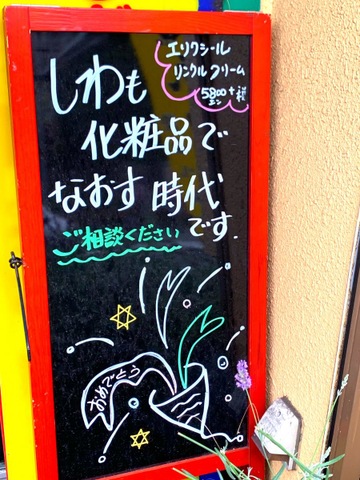 エリクシール
リンクルクリーム
5800+税
エン
しわも
化粧品で
なおす時代
です.
ご相談ください
おめでとう